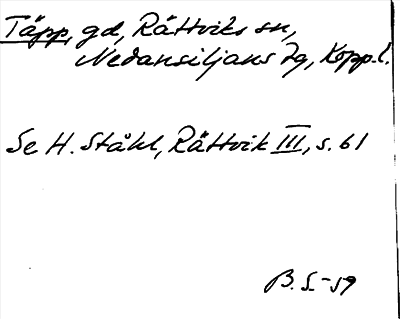 Täpp, gd, Rättviks sn,
Nedansiljans dg, Kopp.l.
Se H. Ståhl, Rättvik III, s. 61
B. S. -59